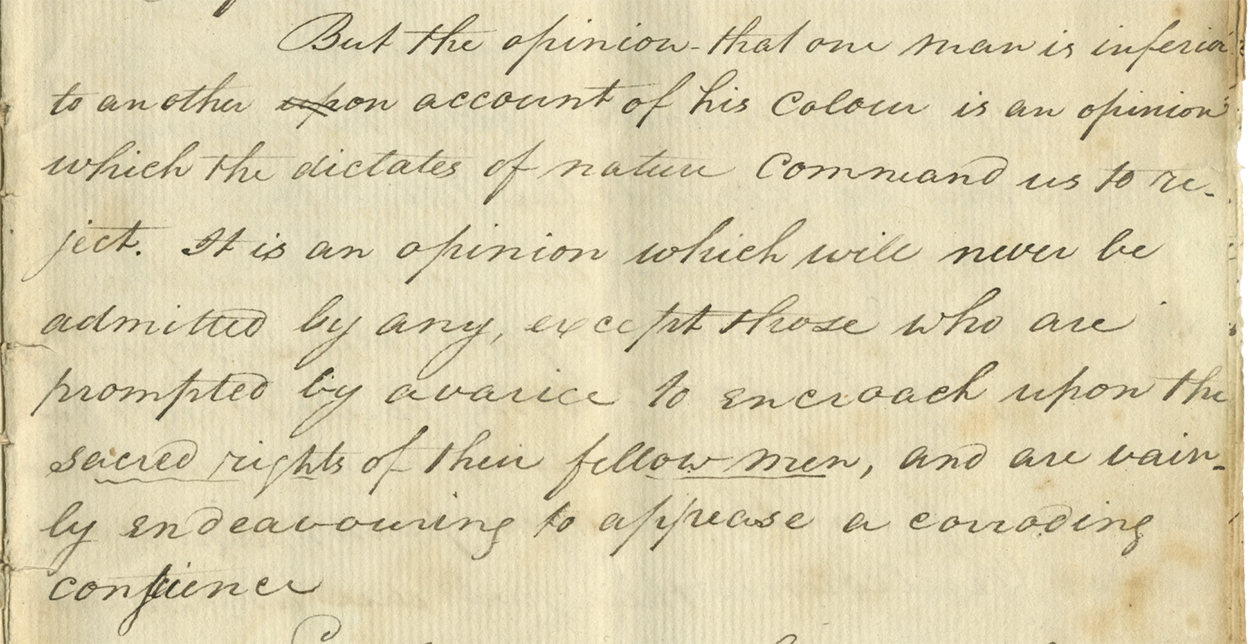 But the opinion-that one man is inferior
to another upon account of his Colour is an opinion
which the dictates of nature Command us to re-
ject. It is an opinion which will never be
admitted by any, except those who are
prompted by avarice to encroach upon the
sacred rights of their fellow men, and are vain-
ly endeavouring to appease a corroding
consience